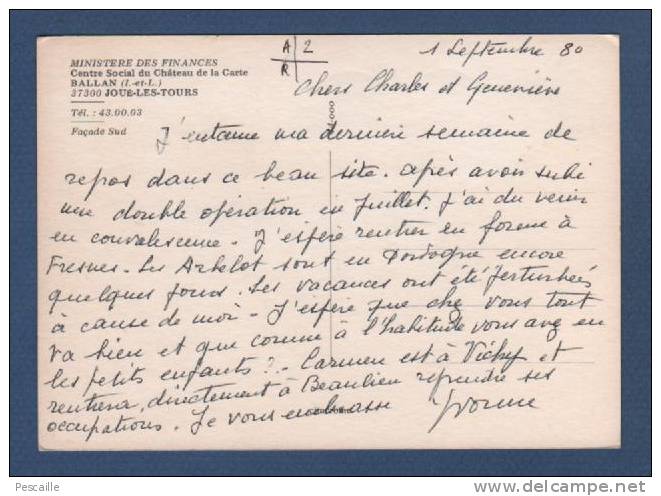 MINISTERE DES FINANCES
Centre Social du Château de la Carte
BALLAN (I.-et-L.)
37300 JOUÉ-LES-TOURS
Tél. : 43.00.03
Façade Sud
A 2
R
1 Septembre 80
Chers Charles et Geneviève
J'entame ma dernière semaine de
repos dans ce beau site. après avoir subi
une double opération en Juillet. J'ai du venir
en convalescence - J'espère rentrer en forme à
Fresnes. Les Arbelot sont en Dordogne encore
quelques jours. Les vacances ont été perturbées
à cause de moi - J'espère que chez vous tout
va bien et que comme à l'habitude vous avez eu
les petits enfants ? - Carmen est à Vichy et
rentrera directement à Beaulieu reprendre ses
occupations. Je vous embrasse Yvonne
Pescaille
www.delcampe.net